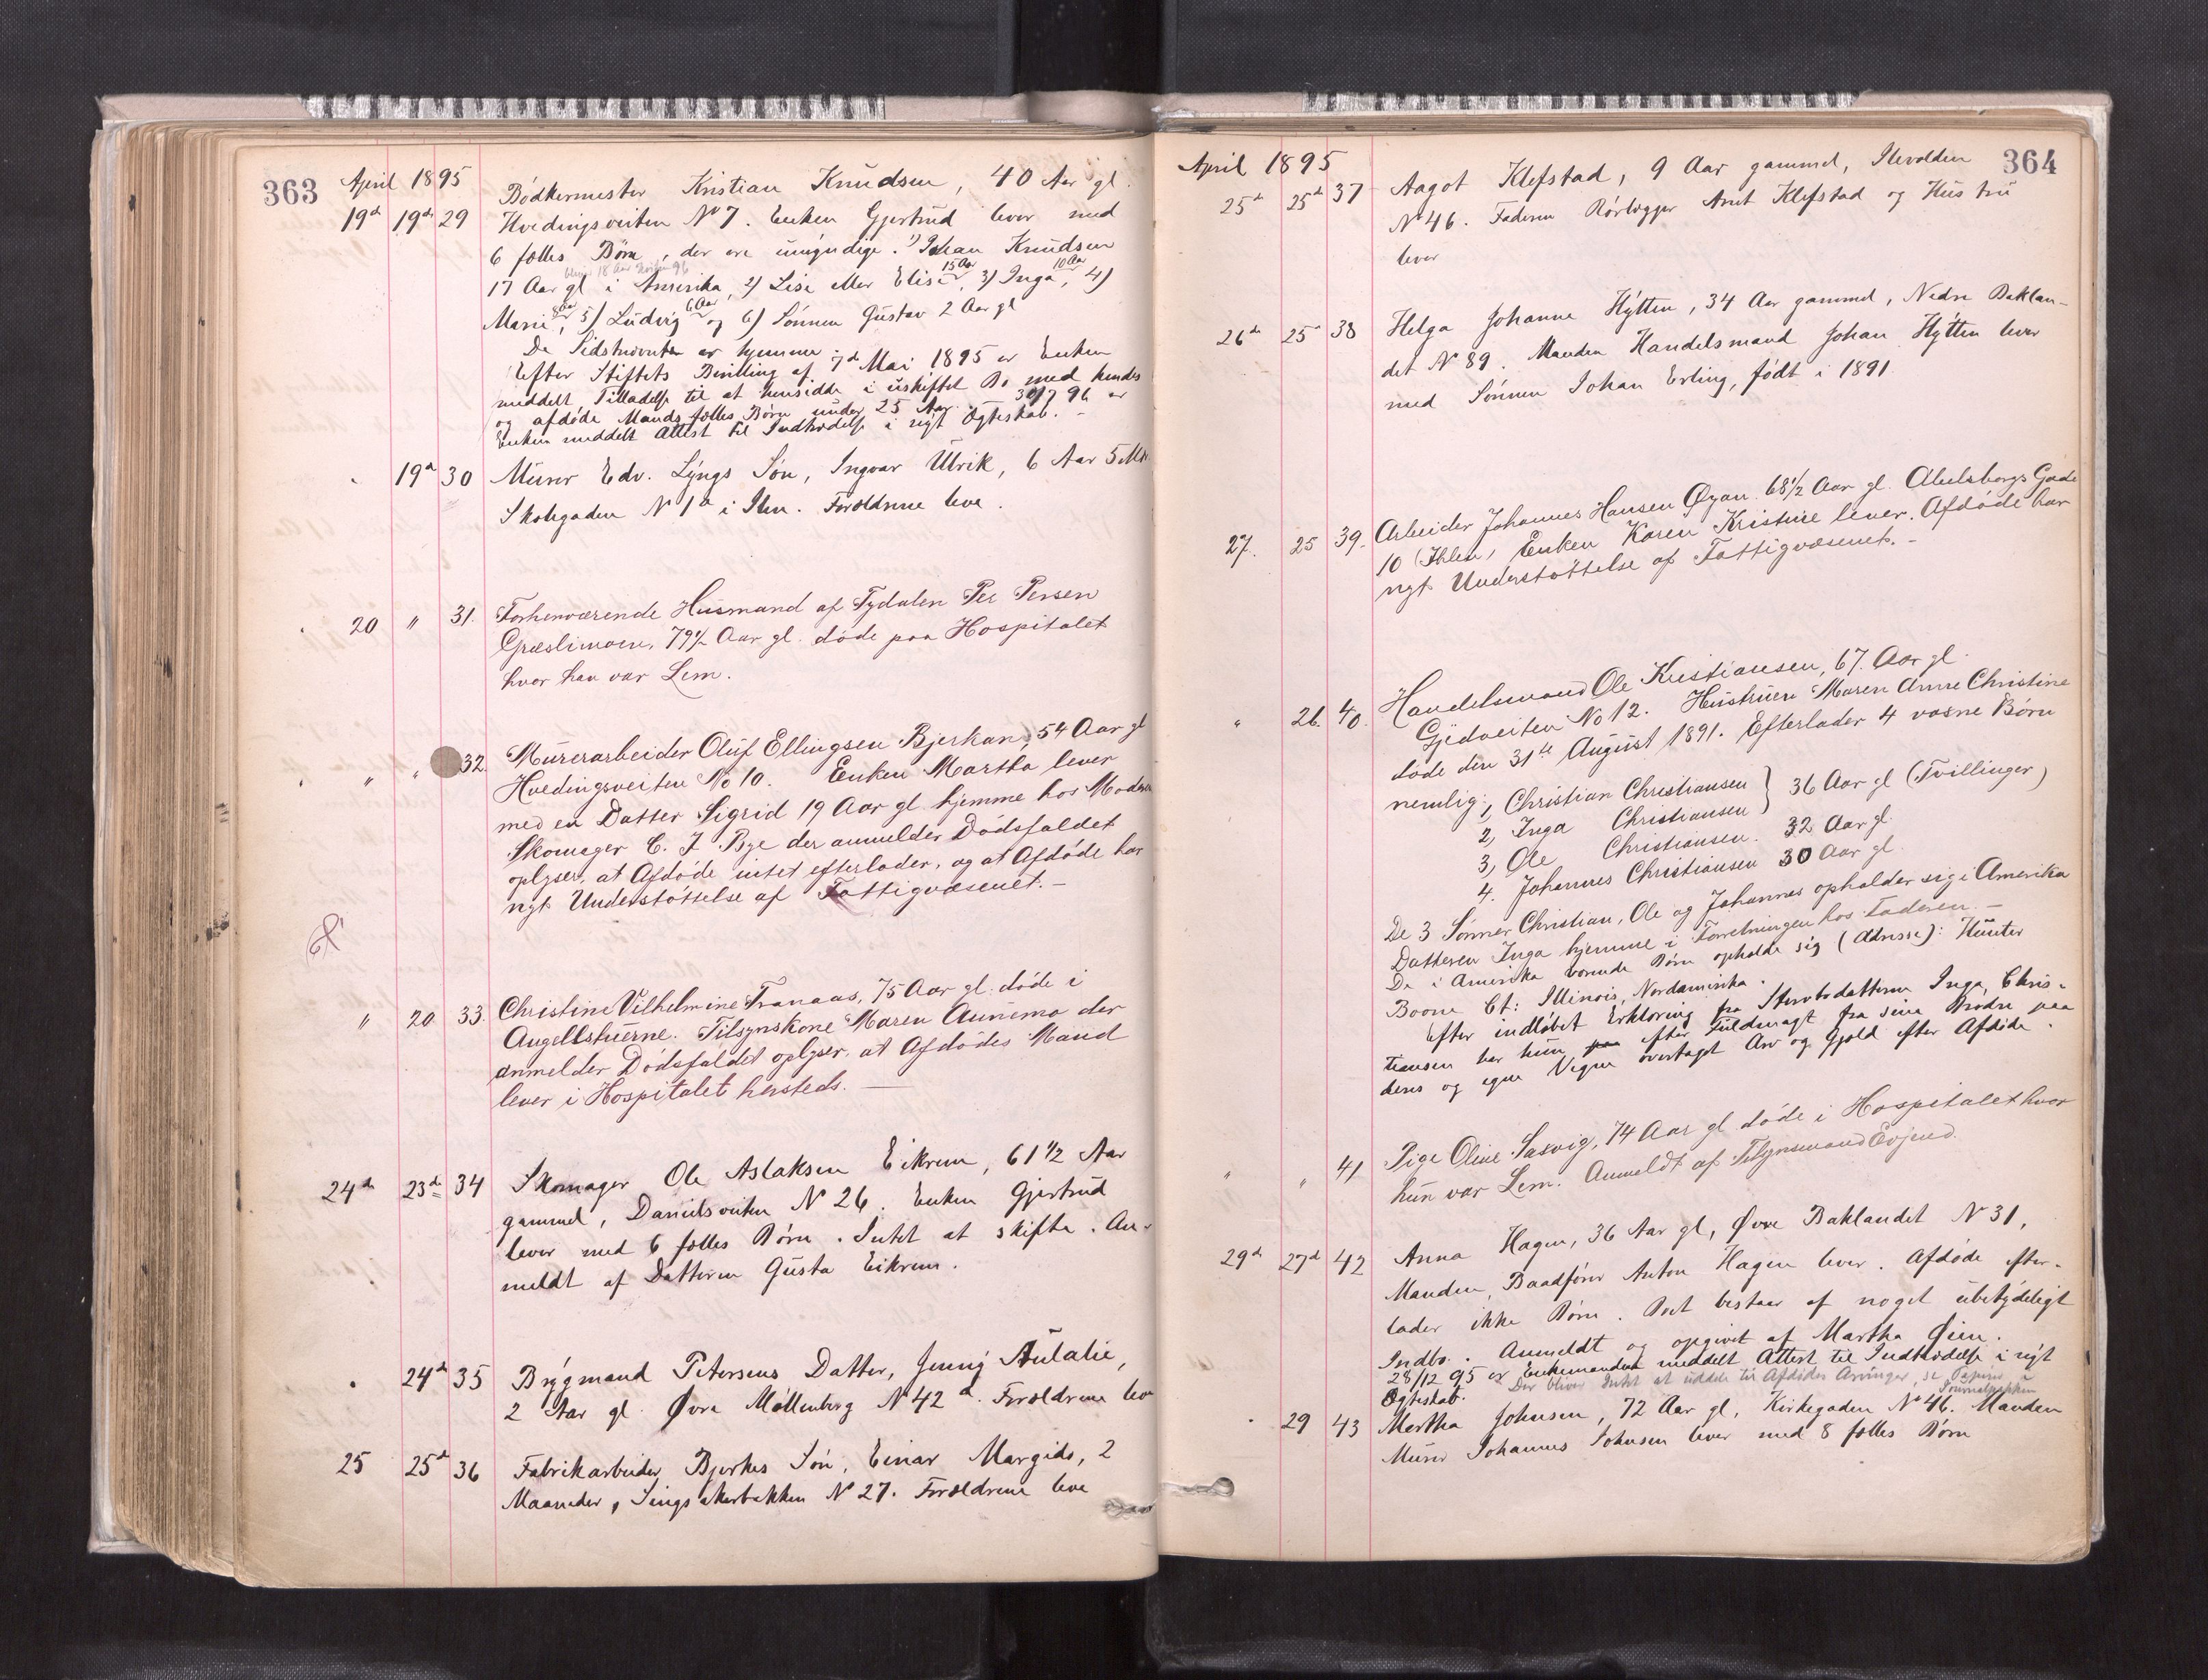 363
April 1895
19de 19de 29 Bödkermester Kristian Knudsen, 40 Aar gl.
Hvedingsveiten No 7. Enken Gjertrud lever med
6 fælles Börn, der ere umyndige. 1) Johan Knudsen
17 Aar gl i Amerika, 2) Lise eller Elise 15 Aar, 3) Inga 10 Aar, 4)
Marie 8 Aar, 5) Ludvig 6 Aar og 6) Sönnen Gustav 2 Aar gl
De Sidstnævnte er hjemme.
Efter Stiftets Bevilling af 7d Mai 1895 er Enken
meddelt Tilladelse til at hensidde i uskiftet Bo med hendes
og afdöde Mands fælles Börn under 25 Aar. 30/7 96 er
Enken meddelt Attest til Indtrædelse i nyt Ægteskab. -
19d 30 Murer Edv. Lyngs Sön, Ingvar Ulrik, 6 Aar 5 Mdr
Skolegaden No 1a i Ilen. Forældrene leve.
20 " 31. Forhenværende Husmand af Tydalen Per Persen
Græslimoen, 79½ Aar gl. döde paa Hospitalet
hvor han var Lem.
" " 32. Murerarbeider Oluf Ellingsen Bjerkan, 54 Aar gl
Hvedingsveiten No 10. Enken Martha lever
med en Datter Sigrid 19 Aar gl. hjemme hos Moderen
Skomager C. J. Rye der anmelder Dödsfaldet
oplyser, at Afdöde intet efterlader, og at Afdöde har
nyt Understöttelse af Fattigvæsenet. -
" 20 33. Christine Vilhelmine Tranaas, 75 Aar gl. döde i
Angellstuerne. Tilsynskone Maren Aunemo der
anmelder Dödsfaldet oplyser, at Afdödes Mand
lever i Hospitalet hersteds. -
24de 23d 34 Skomager Ole Aslaksen Eikrem, 61½ Aar
gammel, Danielsveiten No 26. Enken Gjertrud
lever med 6 fælles Börn. Intet at skifte. An-
meldt af Datteren Gusta Eikrem.
24d 35 Brygmand Petersens Datter, Jenny Aulalie,
2 Aar gl. Øvre Möllenberg No 42a. Forældrene leve
25 25d 36 Fabrikarbeider Bjerkes Sön, Einar Margido, 2
Maaneder, Singsakerbakken No 27. Forældrene leve
364
April 1895
25de 25de 37 Aagot Klefstad, 9 Aar gammel, Ilevolden
No 46. Faderen Rörlægger Arnt Klefstad og Hustru
lever
26de 25d 38 Helga Johanne Hytten, 34 Aar gammel, Nedre Baklan-
det No 89. Manden Handelsmand Johan Hytten lever
med Sönnen Johan Erling, födt i 1891.
27. 25 39. Arbeider Johannes Hansen Øyan. 68½ Aar gl. Abelsborgs Gade
10 (Ihlen) Enken Karen Kristine lever. Afdöde har
nyt Understöttelse af Fattigvæsenet. -
" 26. 40. Handelsmand Ole Kristiansen, 67 Aar gl.
Gjedveiten No 12. Hustruen Maren Anne Christine
döde den 31te August 1891. Efterlader 4 voxne Börn
nemlig: 1, Christian Christiansen } 36 Aar gl (Tvillinger)
2, Inga Christiansen
3, Ole Christiansen. 32 Aar gl.
4. Johannes Christiansen 30 Aar gl
De 3 Sönner Christian, Ole og Johannes opholder sig i Amerika
Datteren Inga hjemme i Forretningen hos Faderen. -
De i Amerika værende Börn opholde sig (Adresse): Hunter
Boone Ct: Illinois, Nordamerika.
Efter indlöbet Erklæring fra Stervbodatteren Inga Chris-
tiansen har hun paa efter Fuldmagt fra sine Brödre paa
deres og egne Vegne overtaget Arv og Gjæld efter Afdöde.
" " 41 Pige Oline Sasvig, 74 Aar gl döde i Hospitalet hvor
hun var Lem. Anmeldt af Tilsynsmand Evjend.
29de 27d 42 Anna Hagen, 36 Aar gl, Øvre Baklandet No 31,
Manden, Baadförer Anton Hagen lever. Afdöde efter-
lader ikke Börn. Boet bestaar af noget ubetydeligt
Indbo. Anmeldt og opgivet af Martha Øien.
28/12 95 er Enkemanden meddelt Attest til Indtrædelse i nyt
Ægteskab. Der bliver Intet at uddele til Afdödes Arvinger, se Papirer
Journalpakken
29 43 Martha Johnsen, 72 Aar gl, Kirkegaden No 46. Manden
Murer Johannes Johnsen lever med 8 fælles Börn